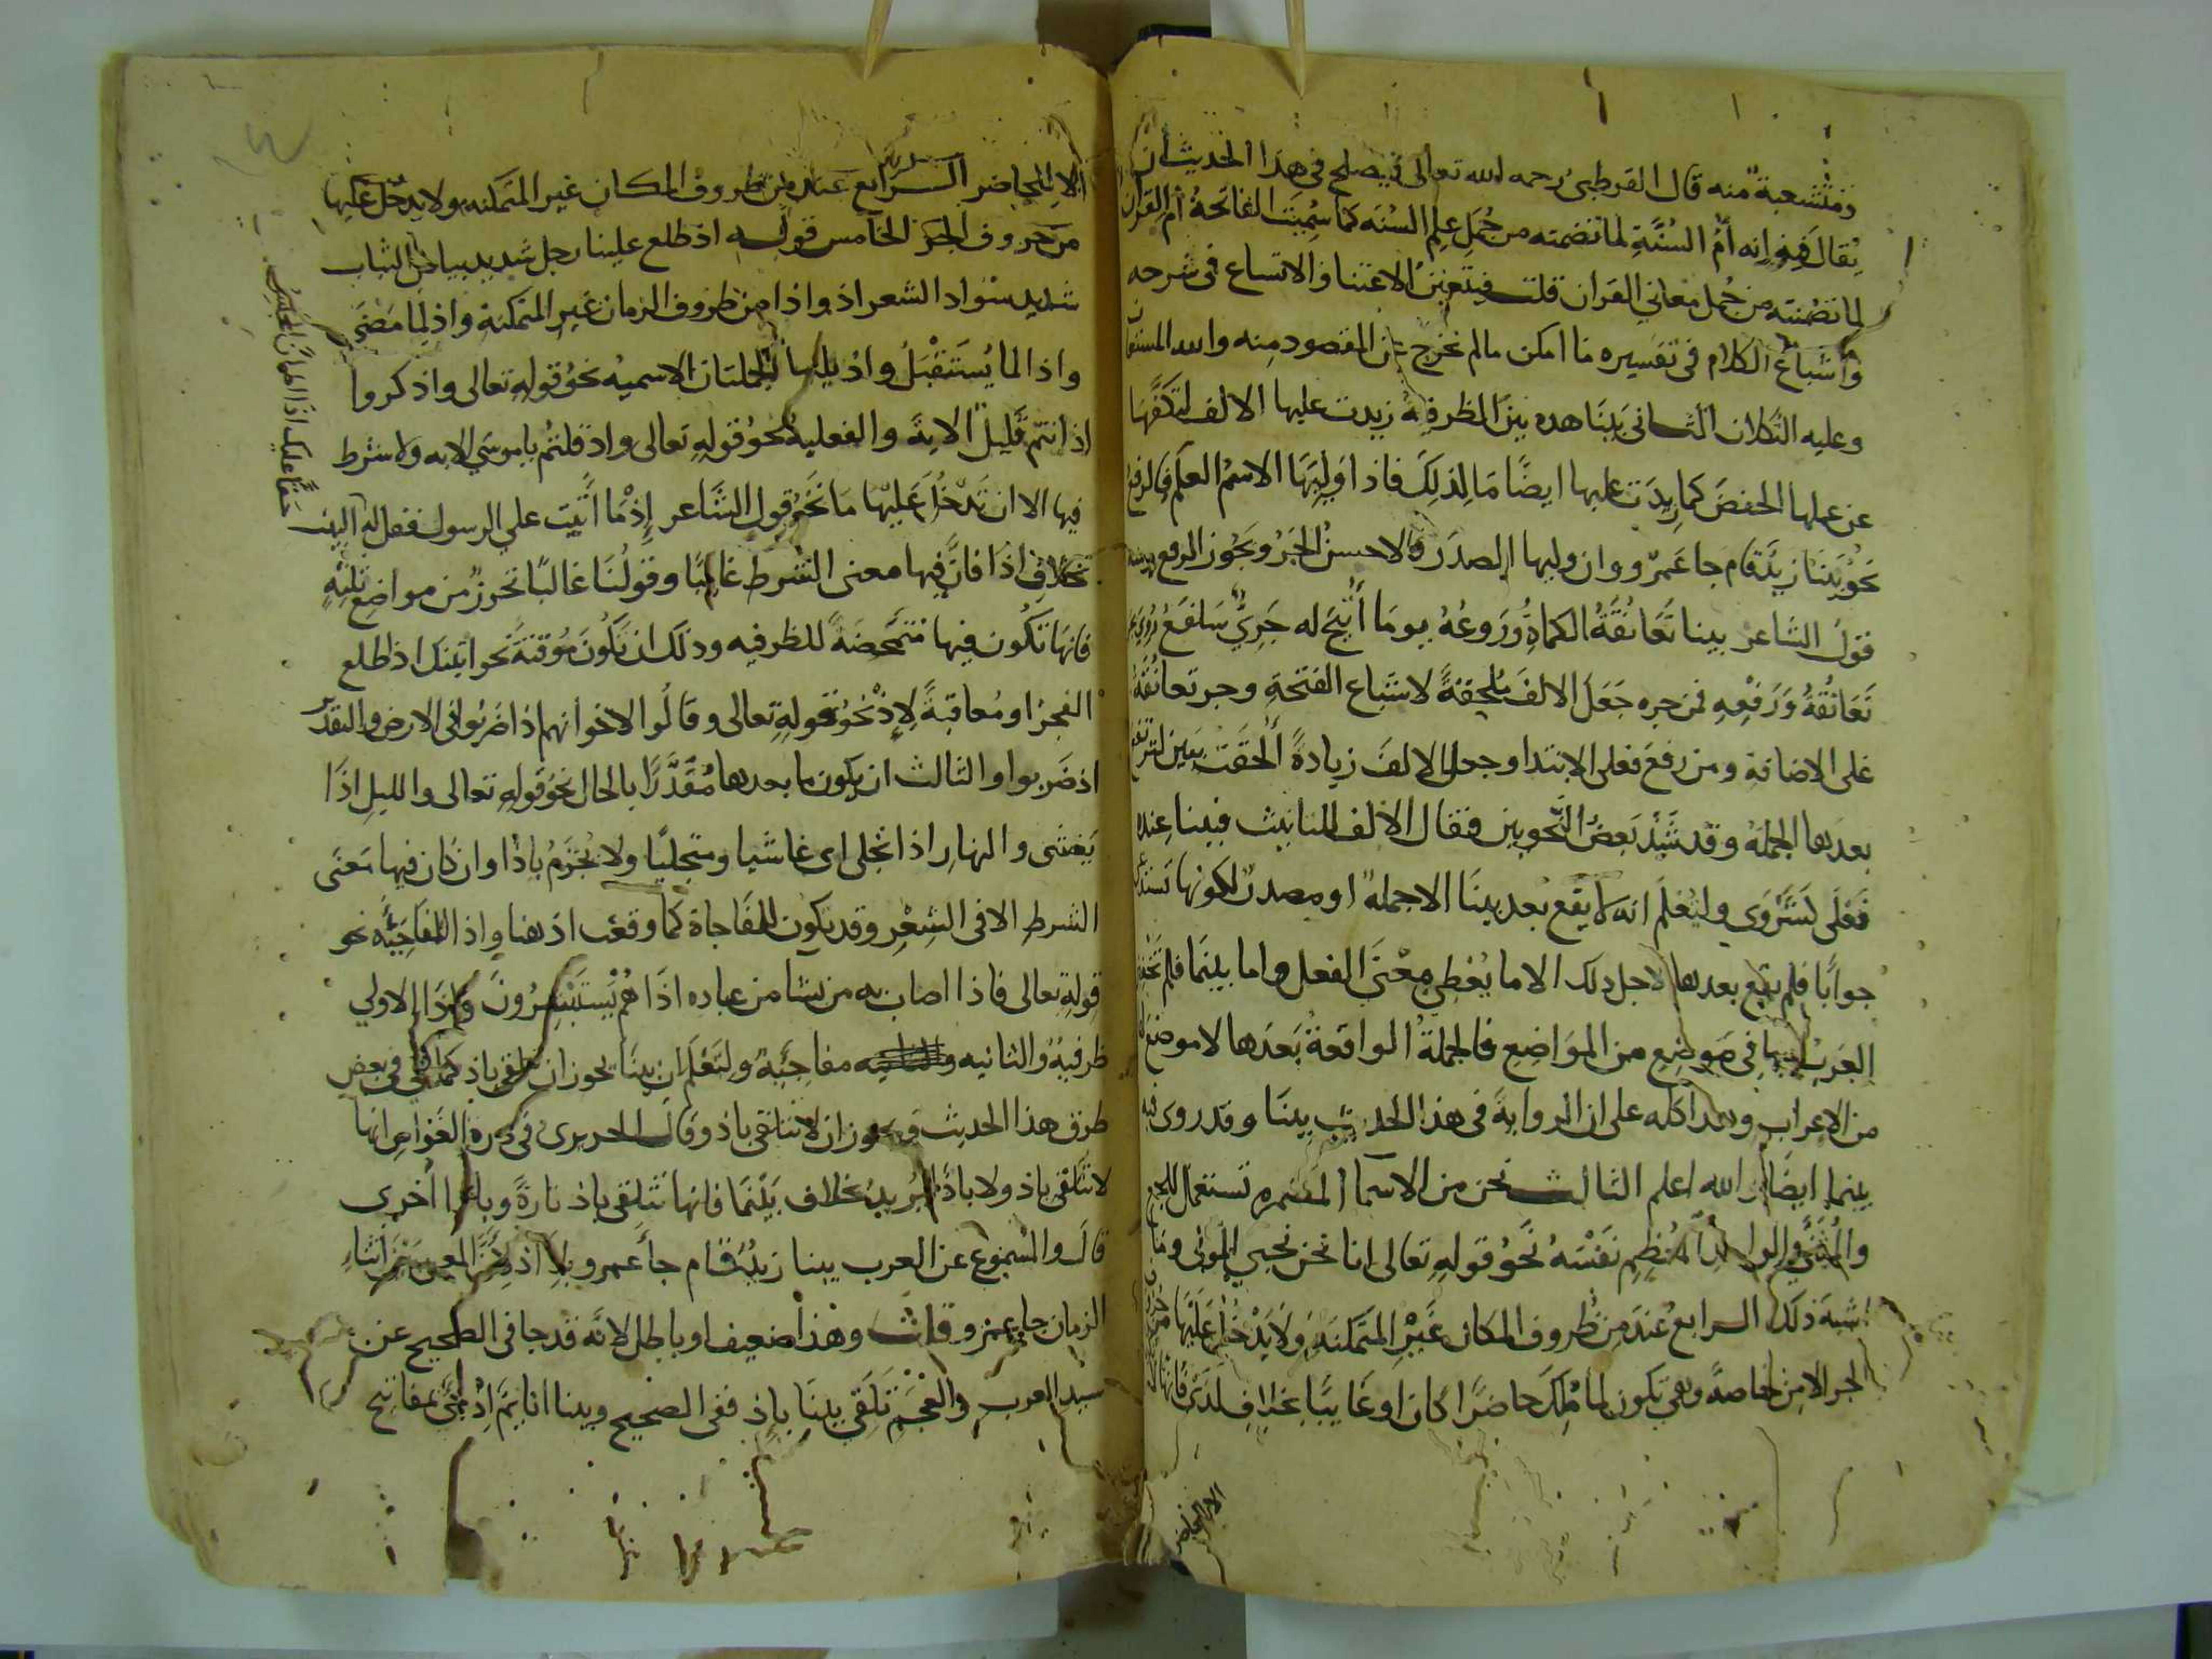 ومتشعبة منه قال القرطبي رحمه الله تعالى فيصلح في هذا الحديث ان
يقال فيه إنه أم السنة لما تضمنه من جمل علم السنه كما سميت الفاتحة أم القران
لما تضمنته من جمل معاني القران قلت فيتعين الاعتنا والاتساع في شرحه
واشباع الكلام في تفسيره ما امكن مالم نخرج عن المقصود منه والله المستعان
وعليه التكلان الثاني بينا هذه بين الظرفية زيدت عليها الالف لتكفها
عن عملها الخفض كما زيدت عليها ايضا ما لذلك فاذا وليها الاسم العلم فالرفع
نحو بينا زيد قام جا عمرو وان وليها المصدر فالاحسن الجر ويجوز الرفع
قول الشاعر بينا تعانقة الكماة وروغه يوما أتيح له جري سلفع روي
تعانقه ورفعه فمن جره جعل الالف ملحقة لاشباع الفتحة وجر تعانقه
على الاضافة ومن رفع فعلى الابتدا وجعل الالف زيادة ألحقت ببين لترتفع
بعدها الجملة وقد شذ بعض النحويين فقال الالف للتانيث فبينا عنده
فعلى كشروى وليعلم انه لا يقع بعد بينا الا جملة او مصدر لكونها تستدعي
جوابا فلم يقع بعدها لاجل ذلك الا ما يعطي معنى الفعل واما بينما فلم تخفض
العرب بها في موضع من المواضع فالجملة الواقعة بعدها لا موضع لها
من الاعراب وهذا كله على ان الرواية في هذا الحديث بينا وقد روي فيه
بينما ايضا والله اعلم الثالث نحن من الاسما المضمره تستعمل للجمع
والمثنى والواحد المعظم نفسه نحو قوله تعالى انا نحن نحيي الموتى وما
اشبه ذلك الرابع عند من ظروف المكان غير المتمكنه ولا يدخل عليها من حروف
الجر الا من خاصة وهي تكون لما ملك حاضرا كان او غايبا بخلاف لدى فانها
الا للحاضر
الا للحاضر الرابع عند من ظروف المكان غير المتمكنه ولا يدخل عليها
من حروف الجر الخامس قوله اذ طلع علينا رجل شديد بياض الثياب
شديد سواد الشعر اذ واذا من ظروف الزمان غير المتمكنة واذ لما مضى
واذا لما يستقبل واذ يليها الجملتان الاسمية نحو قوله تعالى واذكروا
اذ انتم قليل الاية والفعلية نحو قوله تعالى واذ قلتم ياموسى الايه ولا شرط
فيها الا ان تدخل عليها ما نحو قول الشاعر إذما أتيت على الرسول فقل له البيت
حقا عليك اذا اطمأن المجلس
بخلاف اذا فان فيها معنى الشرط غالبا وقولنا غالبا تحرز من مواضع ثلثه
فانها تكون فيها متمحضة للظرفيه وذلك ان تكون موقتة نحو اتيتك اذا طلع
الفجر او معاقبة لإذ نحو قوله تعالى وقالوا لاخوانهم اذا ضربوا في الارض والتقدير
اذ ضربوا والثالث ان يكون ما بعدها مقدرا بالحال نحو قوله تعالى والليل اذا
يغشى والنهار اذا تجلى اى غاشيا ومتجليا ولا يجزم باذا وان كان فيها معنى
الشرط الا في الشعر وقد تكون للمفاجاة كما وقعت اذ هنا واذا المفاجية نحو
قوله تعالى فاذا اصاب به من يشا من عباده اذا هم يستبشرون فاذا الاولي
ظرفية والثانيه مفاجية ولتعلم ان بينا يجوز ان تتلقى باذ كما في بعض
طرق هذا الحديث ويجوز ان لا تتلقى باذ وقال الحريرى في درة الغواص انها
لا تتلقى باذ ولا باذا يريد بخلاف بينما فانها تتلقى باذ تارة وباذا أخرى
قال والمسموع عن العرب بينا زيد قام جا عمرو بلا اذ لان المعنى بين اثناء
الزمان جا عمرو قلت وهذا ضعيف او باطل لانه قد جا في الصحيح عن
سيد العرب والعجم تلقي بينا بإذ ففي الصحيح وبينا انا نايم إذ بمفاتيح